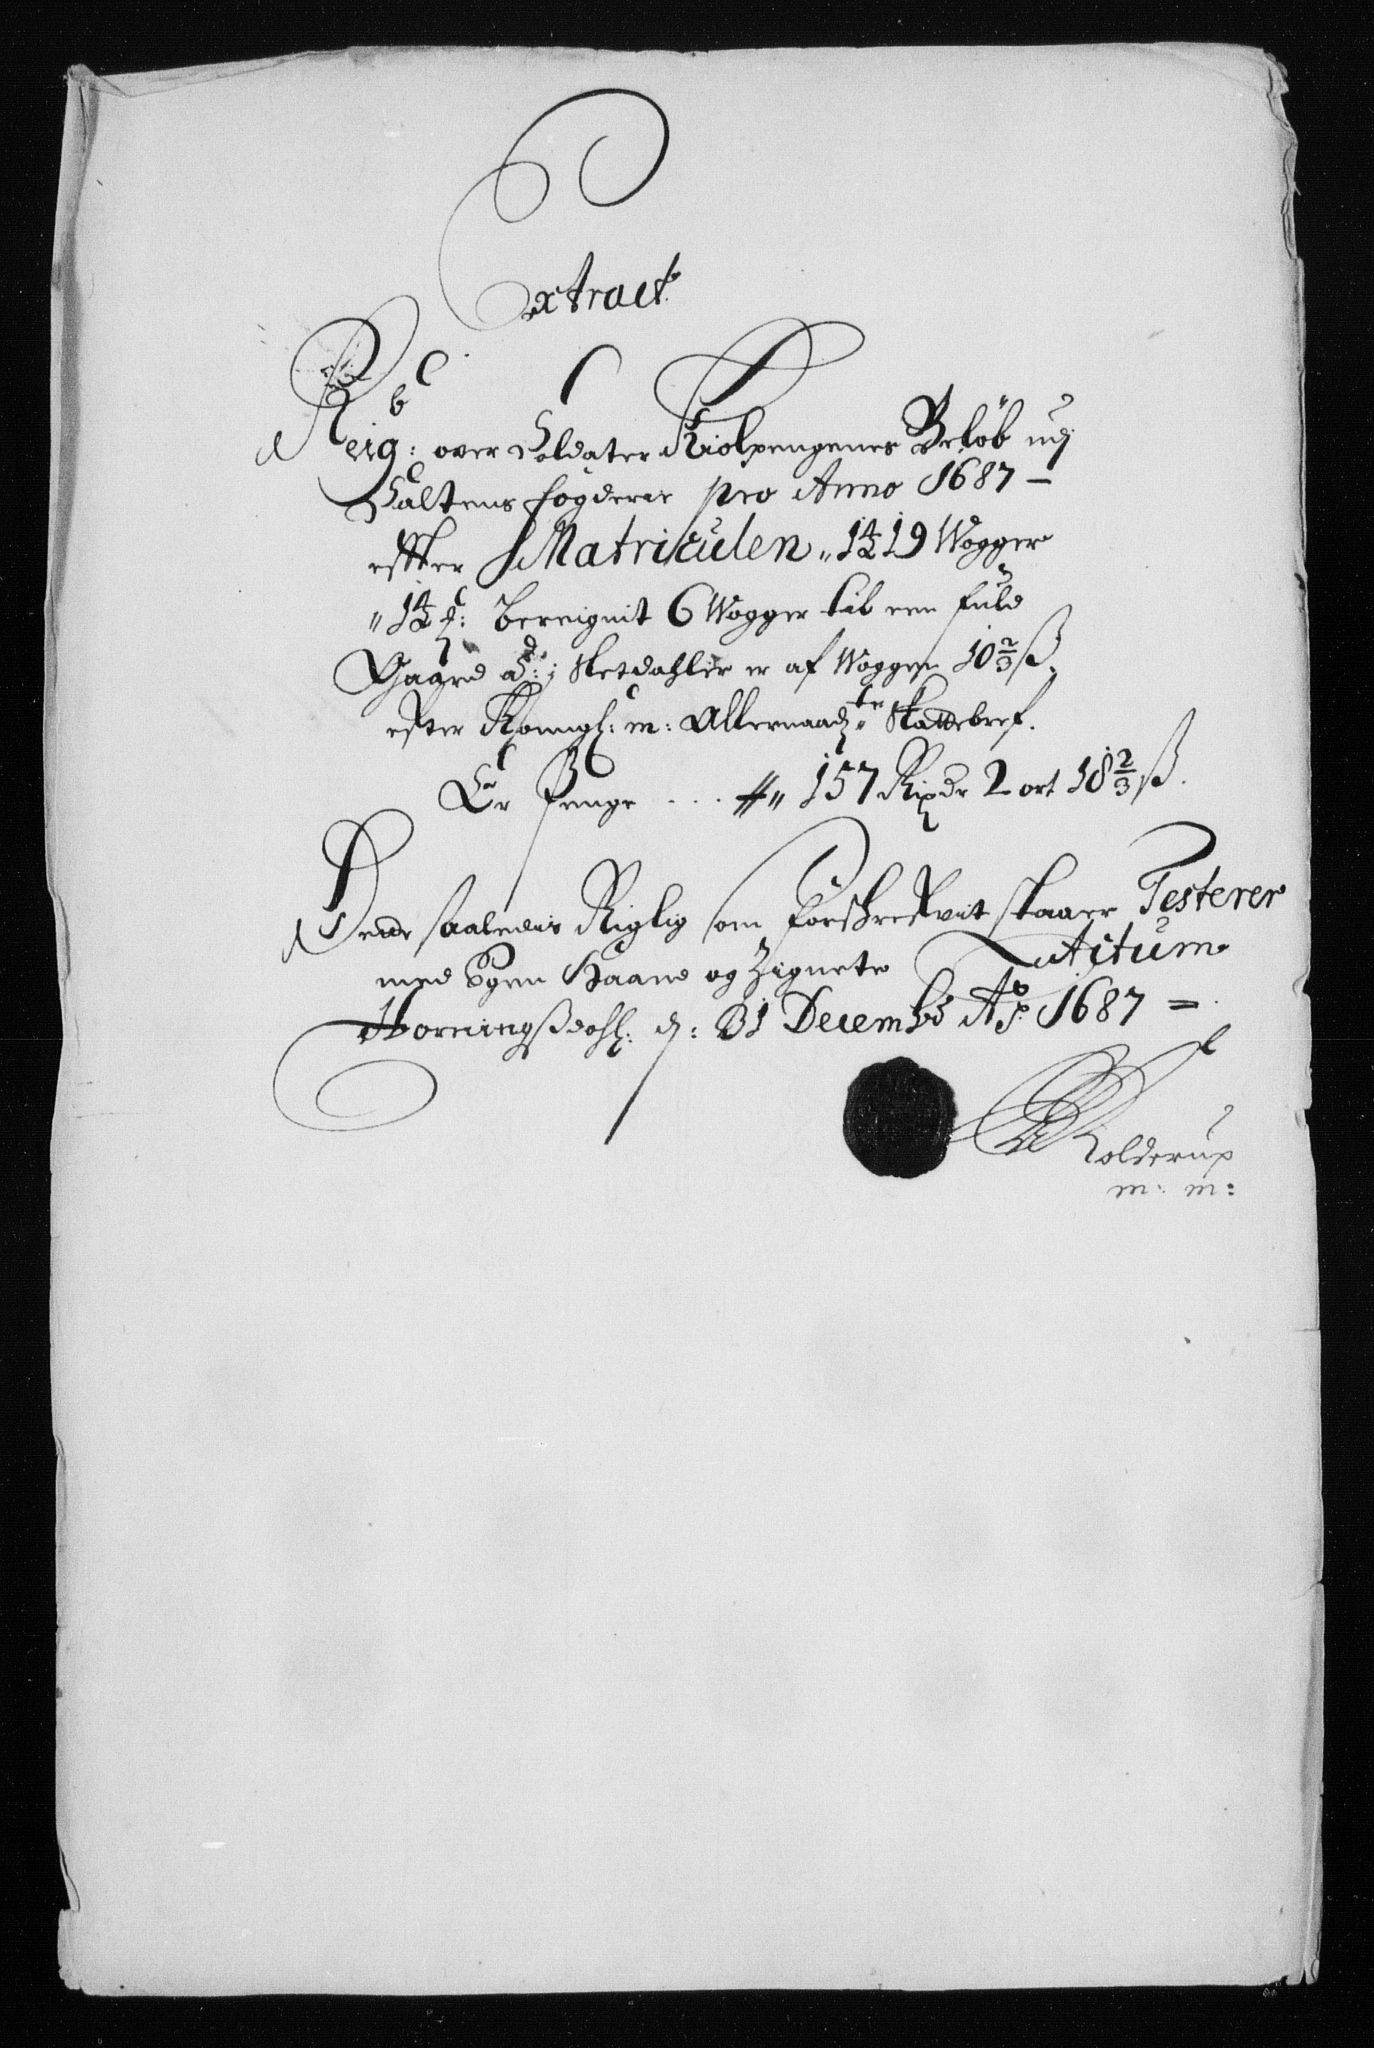 Extract
Reig: over Soldater Kiolpengenes Beløb udj
Saltens fogderie pro Anno 1687 –
effter Matriculen 1419 Wogger
Beregnit 6 Wogger til een fuld
Gaard Sletdahler er af Woggen 10 2/3 ß
efter Konngl: m: Allernaadste Skattebref.
Er Penge . . . 157 Rixdr 2 ort 18 2/3 ß.
Dette saaledis Rigtig som forschrefvit staaer Testerer
med Egen Haand og Zignete Actum
d: 31 Decemb Ao 1687 =
Kolderup
m: m: